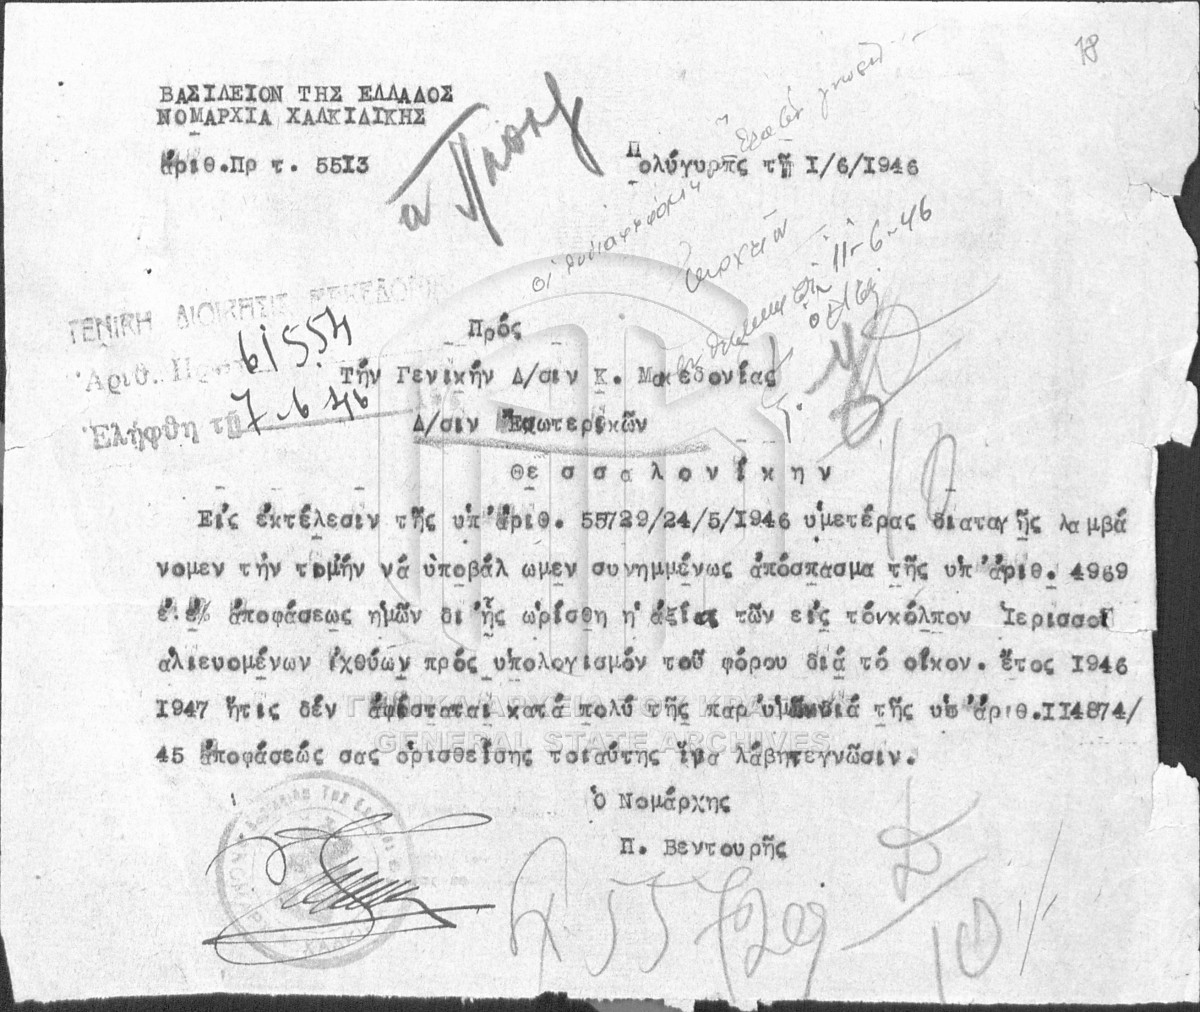 18
ΒΑΣΙΛΕΙΟΝ ΤΗΣ ΕΛΛΑΔΟΣ
ΝΟΜΑΡΧΙΑ ΧΑΛΚΙΔΙΚΗΣ
ἀριθ.Πρ τ. 5513
Πολύγυρος τῇ 1/6/1946
11-6-46
ΓΕΝΙΚΗ ΔΙΟΙΚΗΣΙΣ ΜΑΚΕΔΟΝΙΑΣ
Ἀριθ. Πρωτ. 61554
Ἐλήφθη τῇ 7.6.46
Πρός
Τήν Γενικήν Δ/σιν Κ. Μακεδονίας
Δ/σιν Ἐσωτερικῶν
Θε σ σ α λ ο ν ί κ η ν
Εἰς ἐκτέλεσιν τῆς ὑπ' ἀριθ. 55729/24/5/1946 ὑμετέρας διαταγῆς λα μβά
νομεν τήν τιμήν νά ὑποβάλ ωμεν συνημμένως ἀπόσπασμα τῆς ὑπ' ἀριθ. 4969
ἐ.ἔ. ἀποφάσεως ἡμῶν δι' ἧς ὡρίσθη ἡ ἀξία τῶν εἰς τόνκόλπον Ἱερισσοῦ
ἁλιευομένων ἰχθύων πρός ὑπολογισμόν τοῦ φόρου διά τό οἰκον. ἔτος 1946
1947 ἥτις δέν ἀφίσταται κατά πολύ τῆς παρ' ὑμῶν διά τῆς ὑπ' ἀριθ.114874/
45 ἀποφάσεώς σας ὁρισθείσης τοιαύτης ἵνα λάβητεγνῶσιν.
ΓΕΝΙΚΑ ΑΡΧΕΙΑ ΤΟΥ ΚΡΑΤΟΥΣ
GENERAL STATE ARCHIVES
Ὁ Νομάρχης
Π. Βεντουρῆς
55729
10